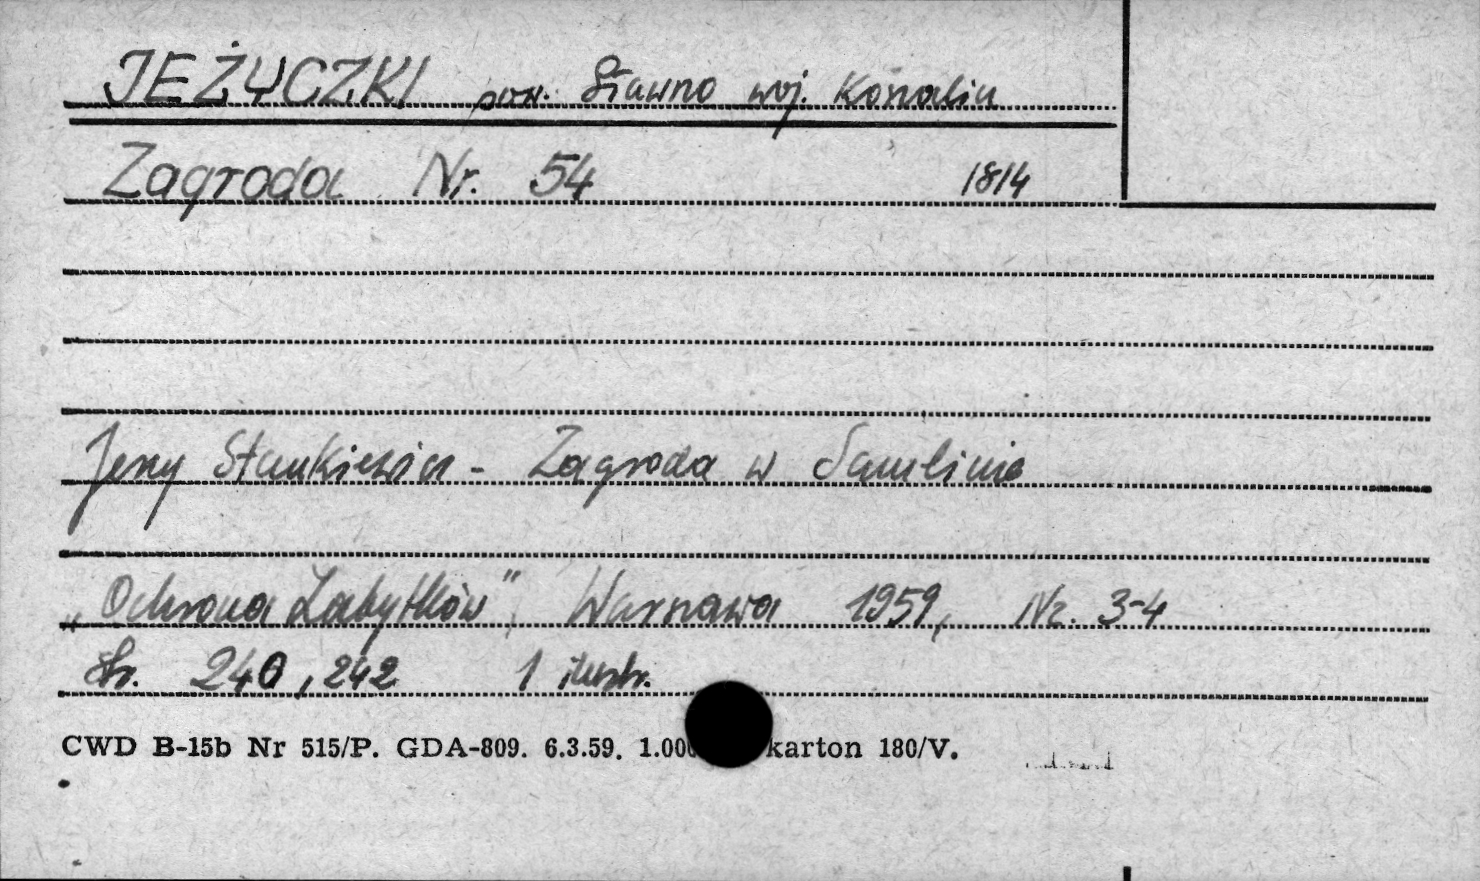 JEŻYCZKI pow. Sławno woj. Koszalin
Zagroda Nr. 54 1814
Jerzy Stankiewicz - Zagroda w Samlinie
„Ochrona Zabytków", Warszawa 1959, Nr. 3-4
str. 240, 242 1 ilustr.
CWD B-15b Nr 515/P. GDA-809. 6.3.59. karton 180/V.